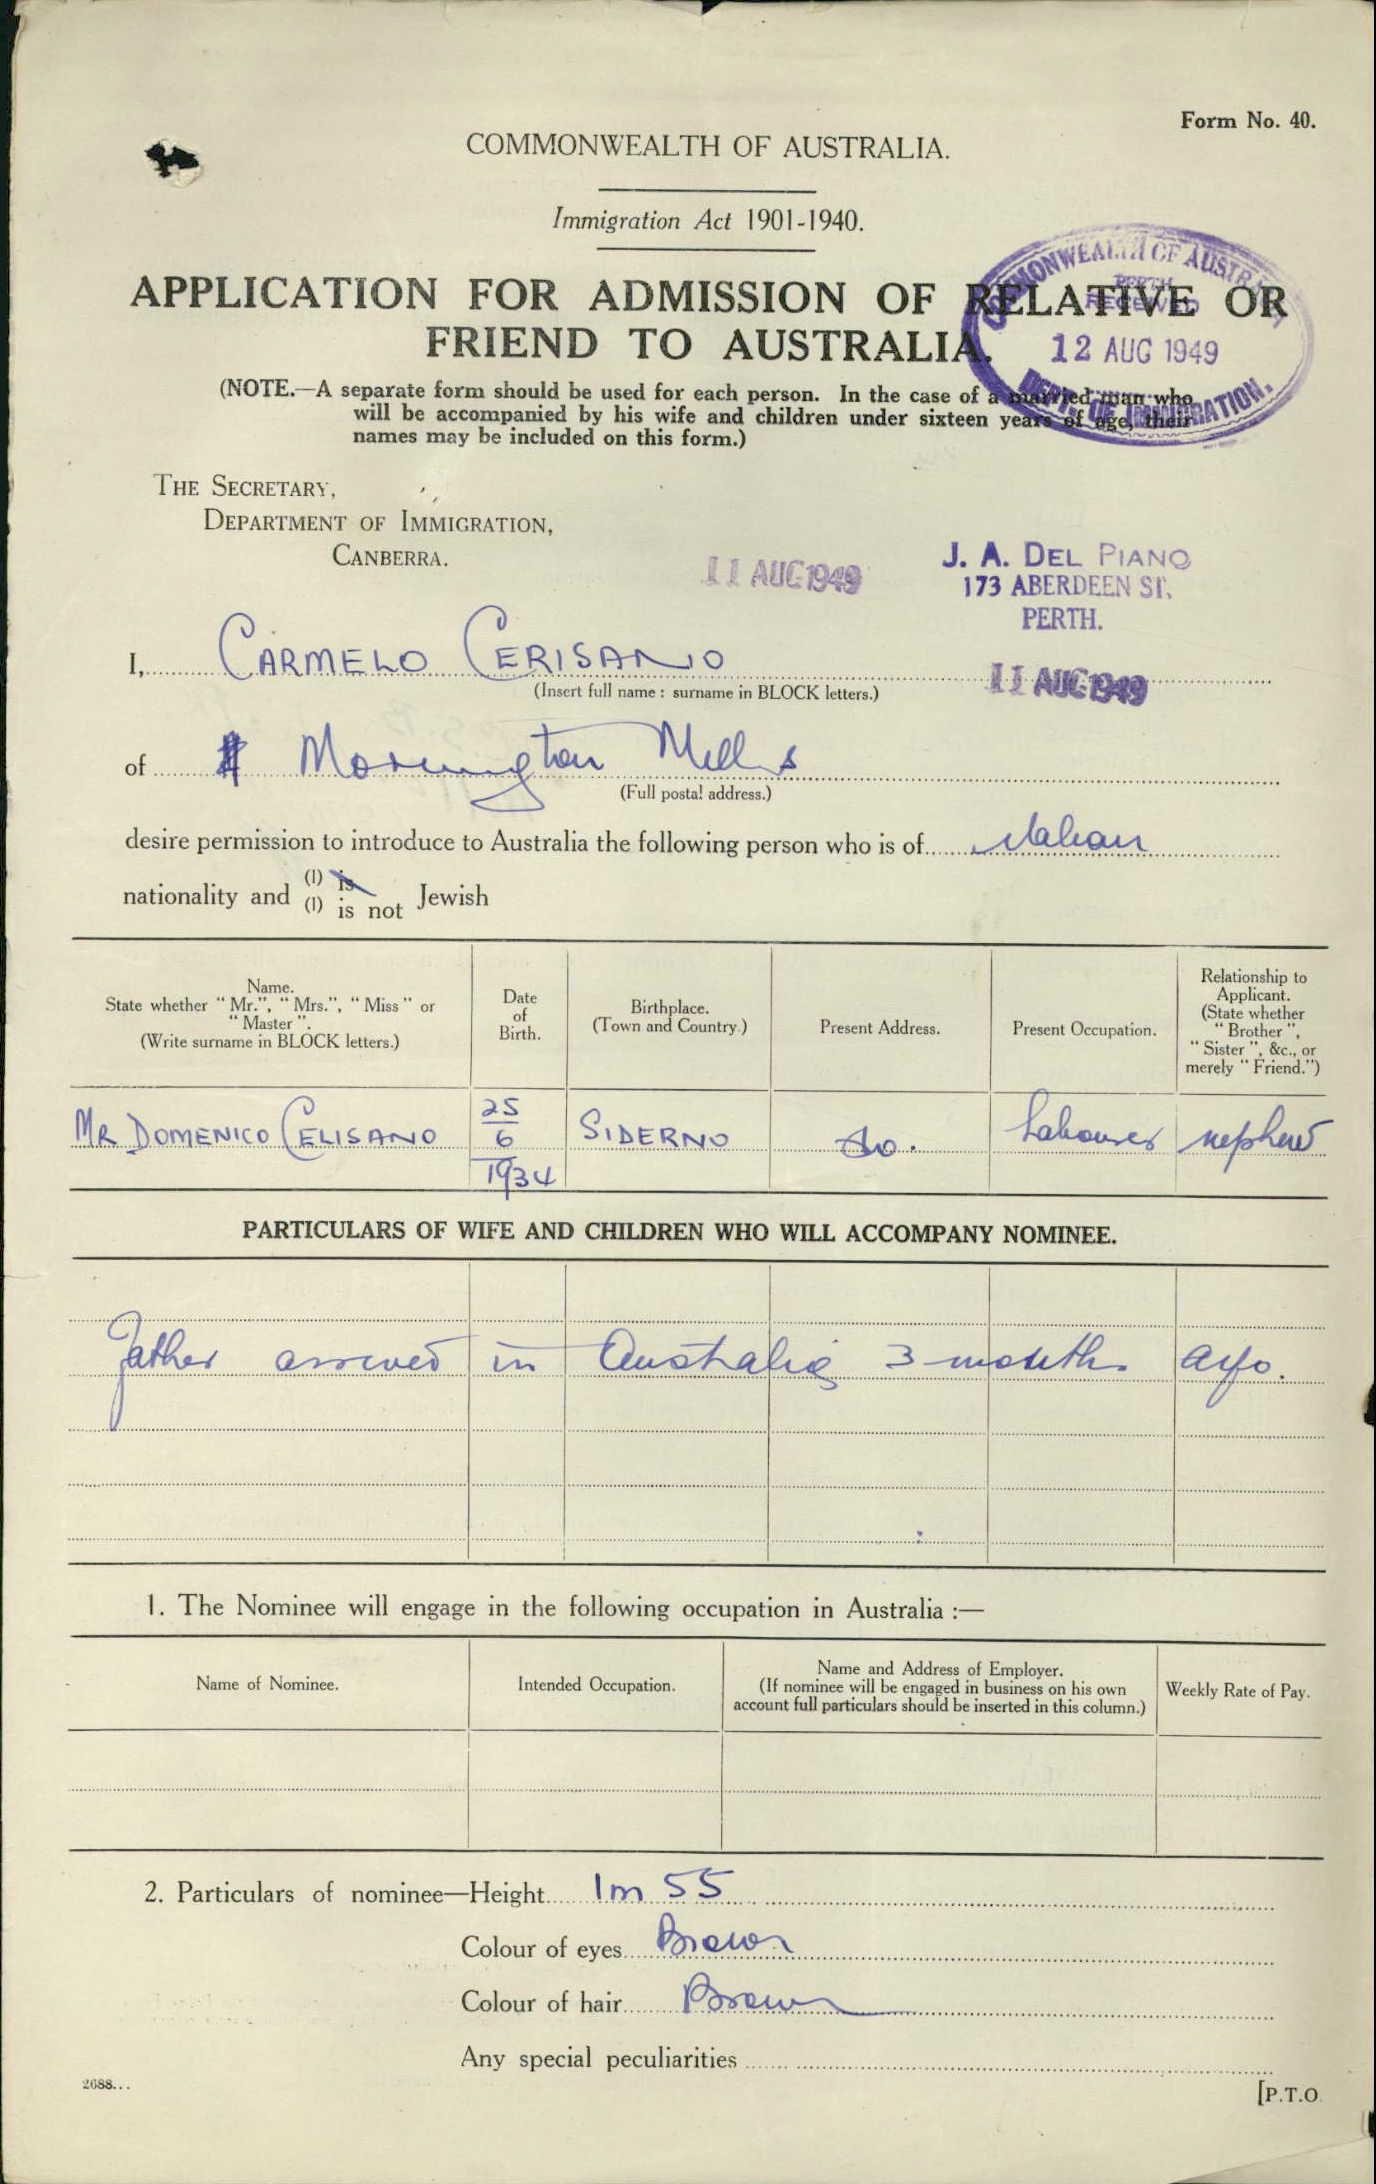 Form No. 40.
COMMONWEALTH OF AUSTRALIA.
Immigration Act 1901-1940.
APPLICATION FOR ADMISSION OF RELATIVE OR
FRIEND TO AUSTRALIA.
COMMONWEALTH OF AUSTRALIA
PERTH
RECEIVED
12 AUG 1949
DEPT. OF IMMIGRATION.
(NOTE.—A separate form should be used for each person. In the case of a married man who
will be accompanied by his wife and children under sixteen years of age, their
names may be included on this form.)
THE SECRETARY,
DEPARTMENT OF IMMIGRATION,
CANBERRA.
11 AUG 1949
J. A. DEL PIANO
173 ABERDEEN ST.
PERTH.
I, CARMELO CERISANO
(Insert full name : surname in BLOCK letters.)
11 AUG 1949
of Mornington Mills
(Full postal address.)
desire permission to introduce to Australia the following person who is of Italian
nationality and (1) is
(1) is not Jewish
Name.
State whether "Mr.", "Mrs.", "Miss" or
"Master".
(Write surname in BLOCK letters.)
Date
of
Birth.
Birthplace.
(Town and Country.)
Present Address.
Present Occupation.
Relationship to
Applicant.
(State whether
"Brother",
"Sister", &c., or
merely "Friend.")
MR DOMENICO CELISANO
25
6
1934
SIDERNO
do.
Labourer
nephew
PARTICULARS OF WIFE AND CHILDREN WHO WILL ACCOMPANY NOMINEE.
Father arrived in Australia 3 months ago.
1. The Nominee will engage in the following occupation in Australia :—
Name of Nominee.
Intended Occupation.
Name and Address of Employer.
(If nominee will be engaged in business on his own
account full particulars should be inserted in this column.)
Weekly Rate of Pay.
2. Particulars of nominee—Height 1m 55
Colour of eyes Brown
Colour of hair Brown
Any special peculiarities
2688...
[P.T.O.